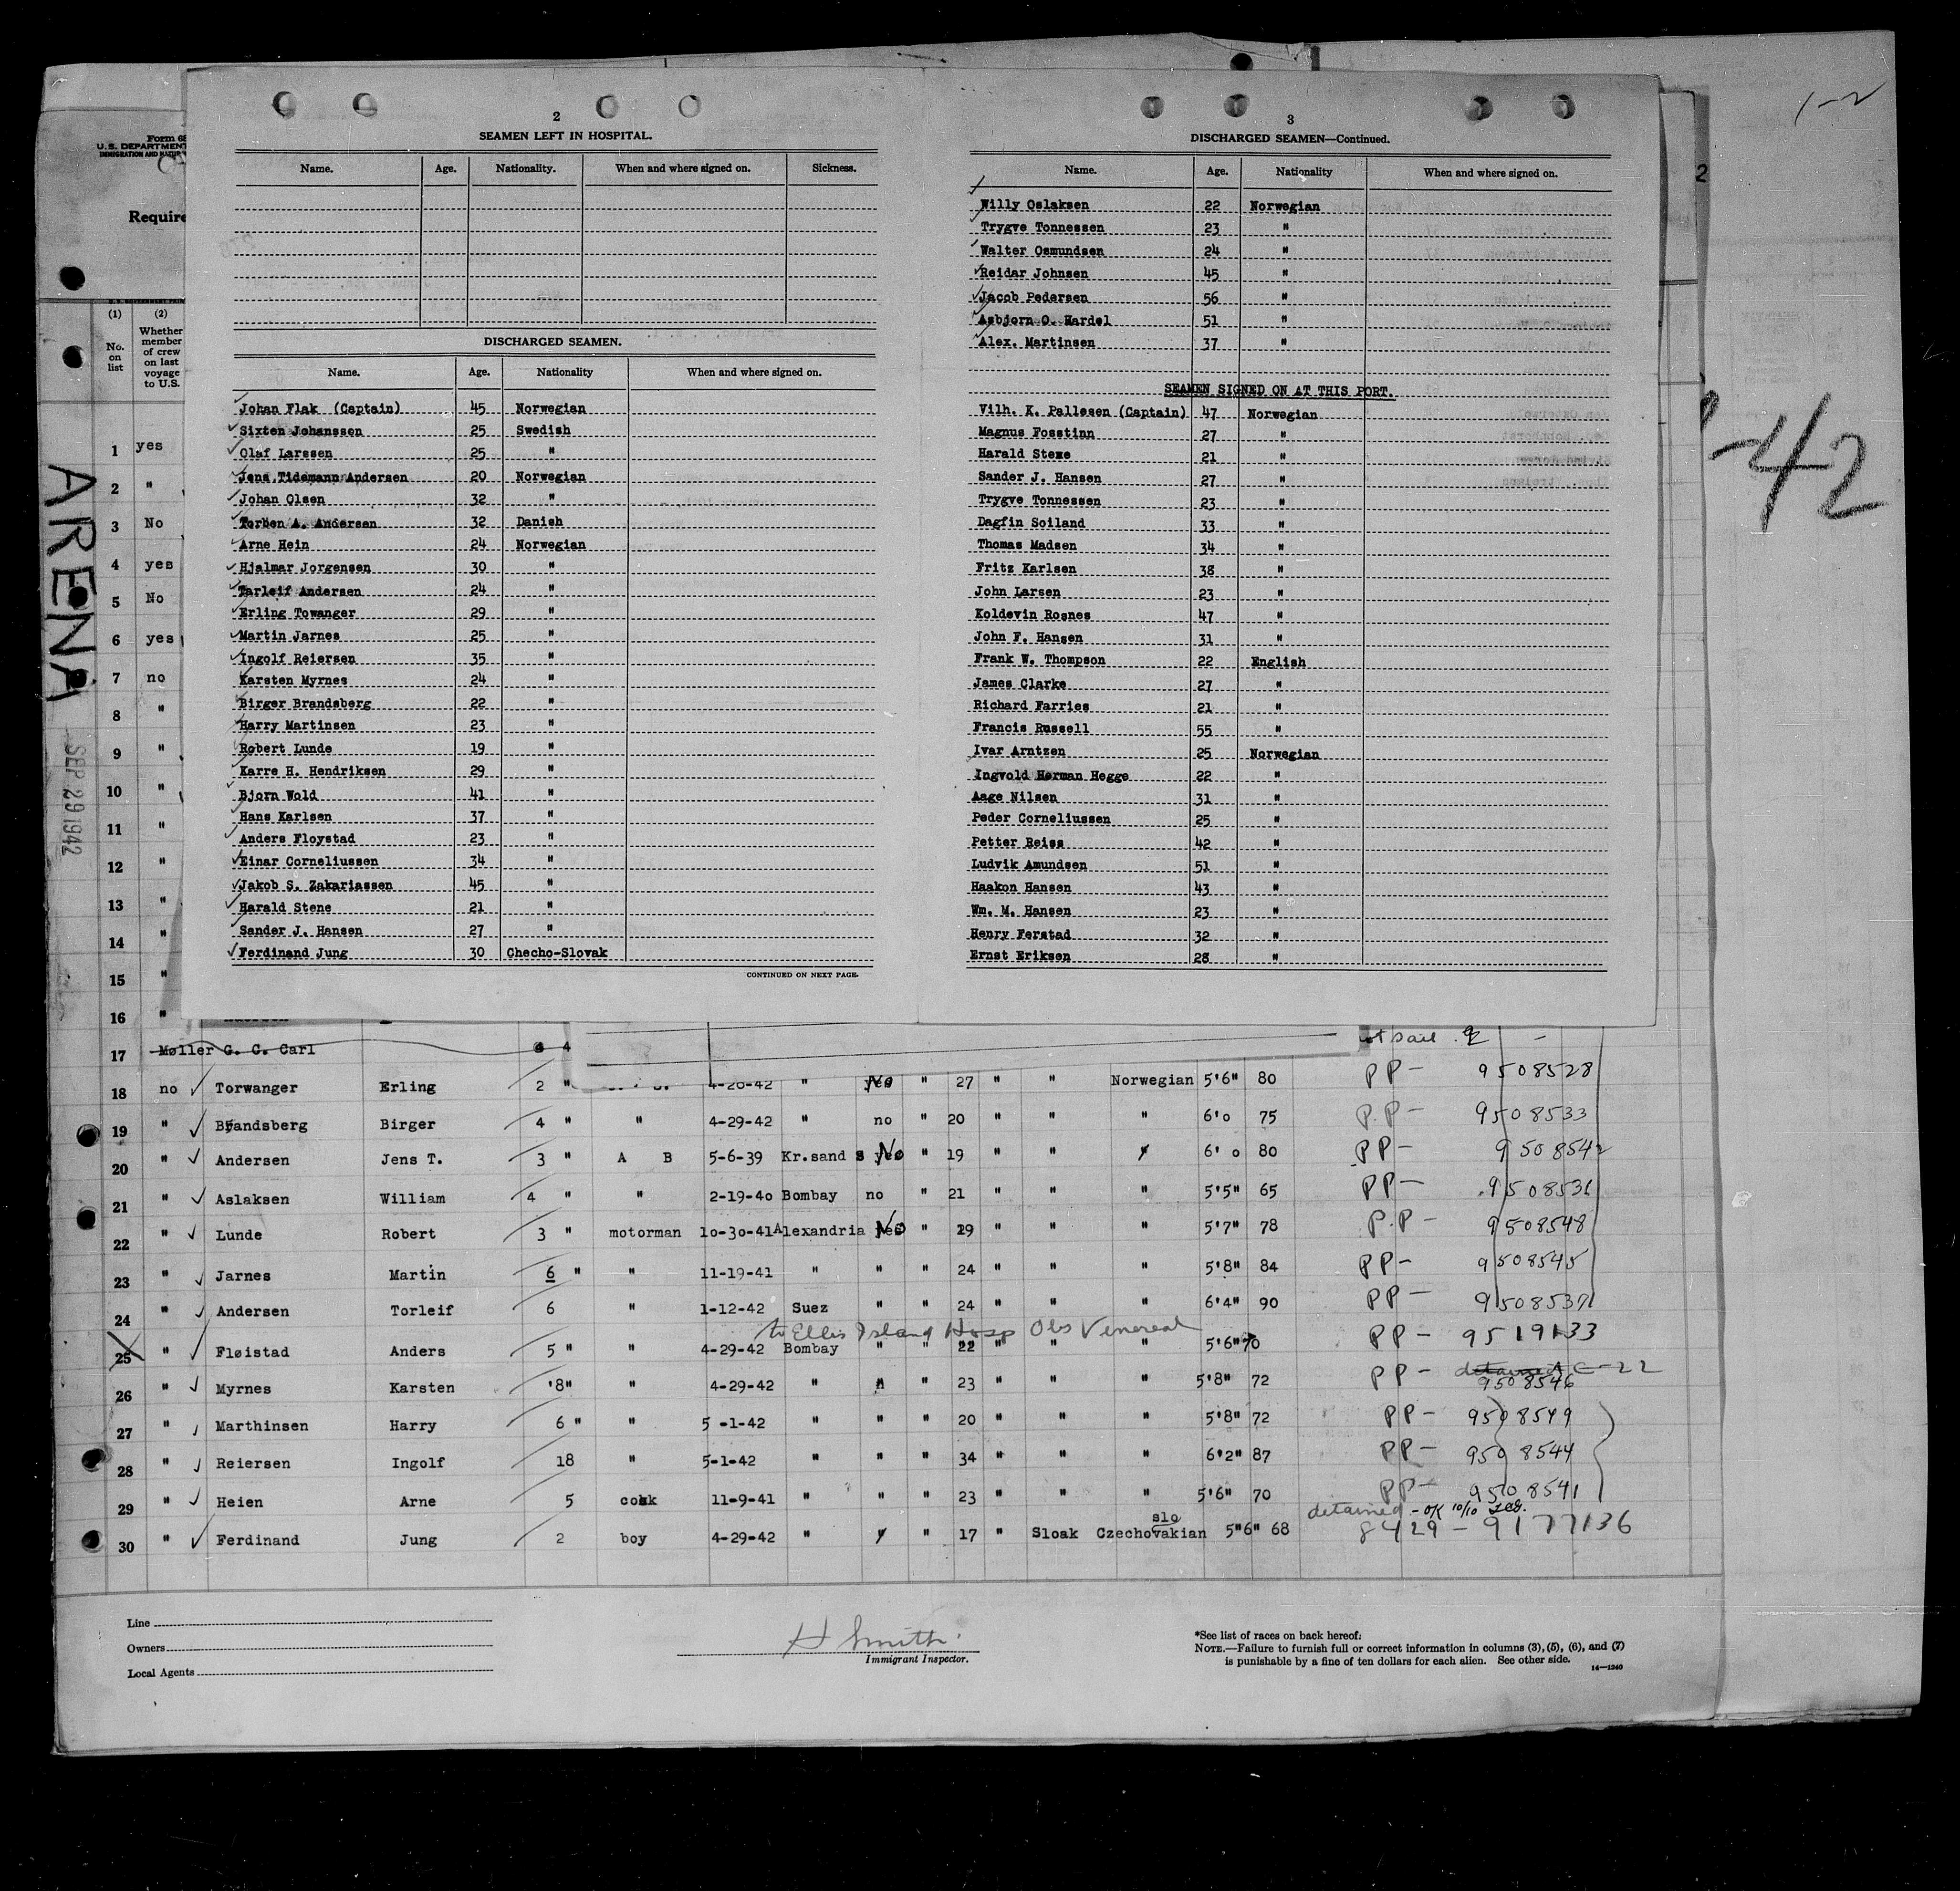 1-2
2
-42
Form 68
U.S. DEPARTMENT
IMMIGRATION AND NATUR
Require
(1) (2)
No. on list
Whether member of crew on last voyage to U.S.
ARENA
SEP 29 1942
1 yes
2 "
3 No
4 yes
5 No
6 yes
7 no
8 "
9 "
10 "
11 "
12 "
13 "
14 "
15 "
16 "
2
SEAMEN LEFT IN HOSPITAL.
Name. Age. Nationality. When and where signed on. Sickness.
DISCHARGED SEAMEN.
Name. Age. Nationality When and where signed on.
Johan Flak (Captain) 45 Norwegian
Sixten Johanssen 25 Swedish
Olaf Larssen 25 "
Jens Tidemann Andersen 20 Norwegian
Johan Olsen 32 "
Torben A. Andersen 32 Danish
Arne Hein 24 Norwegian
Hjalmar Jorgensen 30 "
Tarleif Andersen 24 "
Erling Towanger 29 "
Martin Jarnes 25 "
Ingolf Reiersen 35 "
Karsten Myrnes 24 "
Birger Brandsberg 22 "
Harry Martinsen 23 "
Robert Lunde 19 "
Karre H. Hendriksen 29 "
Bjorn Wold 41 "
Hans Karlsen 37 "
Anders Floystad 23 "
Einar Corneliussen 34 "
Jakob S. Zakariassen 45 "
Harald Stene 21 "
Sander J. Hansen 27 "
Ferdinand Jung 30 Checho-Slovak
CONTINUED ON NEXT PAGE.
3
DISCHARGED SEAMEN—Continued.
Name. Age. Nationality When and where signed on.
Willy Oslaksen 22 Norwegian
Trygve Tonnessen 23 "
Walter Osmundsen 24 "
Reidar Johnsen 45 "
Jacob Pedersen 56 "
Asbjorn O. Hardel 51 "
Alex. Martinsen 37 "
SEAMEN SIGNED ON AT THIS PORT.
Vilh. K. Pallesen (Captain) 47 Norwegian
Magnus Fosstinn 27 "
Harald Stene 21 "
Sander J. Hansen 27 "
Trygve Tonnessen 23 "
Dagfin Soiland 33 "
Thomas Madsen 34 "
Fritz Karlsen 38 "
John Larsen 23 "
Koldevin Rosnes 47 "
John F. Hansen 31 "
Frank W. Thompson 22 English
James Clarke 27 "
Richard Farries 21 "
Francis Russell 55 "
Ivar Arntzen 25 Norwegian
Ingvold Herman Hegge 22 "
Aage Nilsen 31 "
Peder Corneliussen 25 "
Petter Reiss 42 "
Ludvik Amundsen 51 "
Haakon Hansen 43 "
Wm. M. Hansen 23 "
Henry Ferstad 32 "
Ernst Eriksen 28 "
17 Møller G. C. Carl 4 ot sail
18 no Torwanger Erling 2 " 4-26-42 " No " 27 " " Norwegian 5'6" 80 PP- 9508528
19 " Brandsberg Birger 4 " " 4-29-42 " no " 20 " " " 6'0 75 P.P- 9508533
20 " Andersen Jens T. 3 " A B 5-6-39 Kr.sand s No " 19 " " " 6'0 80 PP- 9508542
21 " Aslaksen William 4 " " 2-19-40 Bombay no " 21 " " " 5'5" 65 PP- 9508531
22 " Lunde Robert 3 " motorman 10-30-41 Alexandria No " 29 " " " 5'7" 78 P.P- 9508548
23 " Jarnes Martin 6 " " 11-19-41 " " " 24 " " " 5'8" 84 PP- 9508545
24 " Andersen Torleif 6 " 1-12-42 Suez " " 24 " " " 6'4" 90 PP- 9508537
to Ellis Island Hosp Obs Venereal
25 " Fløistad Anders 5 " " 4-29-42 Bombay " " 22 " " " 5'6" 70 PP- 9519133
26 " Myrnes Karsten '8" " 4-29-42 " " " 23 " " " 5'8" 72 PP- detained C-22 9508546
27 " Marthinsen Harry 6 " " 5-1-42 " " " 20 " " " 5'8" 72 PP- 9508549
28 " Reiersen Ingolf 18 " 5-1-42 " " " 34 " " " 6'2" 87 PP- 9508544
29 " Heien Arne 5 cook 11-9-41 " " " 23 " " " 5'6" 70 PP- 9508541
detained - OK 10/10
30 " Ferdinand Jung 2 boy 4-29-42 " " " 17 " Sloak Czechoslovakian 5"6" 68 8429 - 9177136
Line
Owners
Local Agents
H Smith
Immigrant Inspector.
*See list of races on back hereof.
NOTE.—Failure to furnish full or correct information in columns (3), (5), (6), and (7)
is punishable by a fine of ten dollars for each alien. See other side.
14—1240